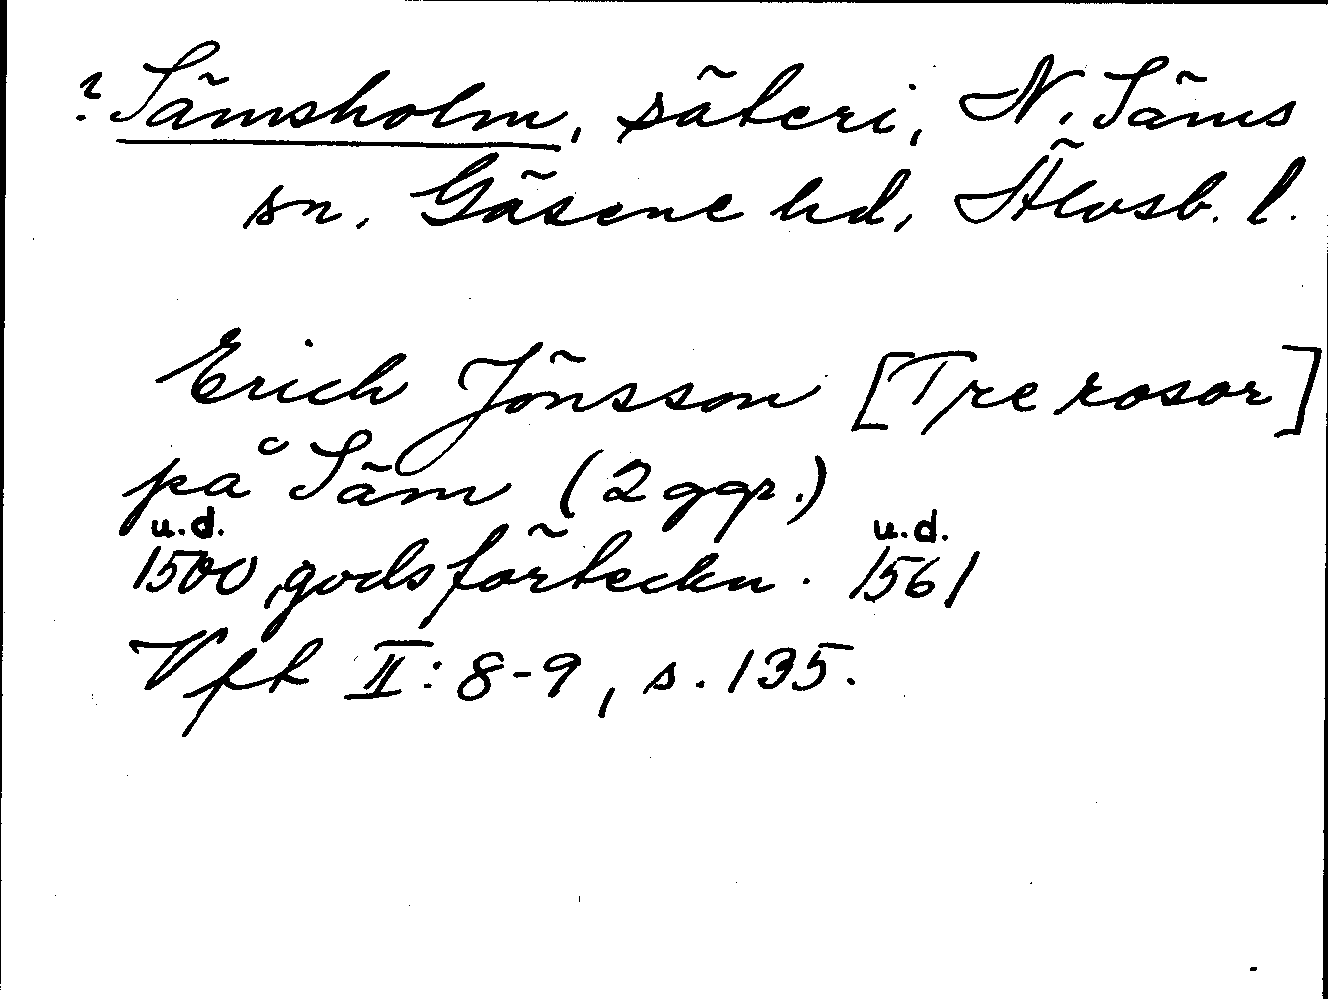 ? Sämsholm, säteri, N. Säms
sn. Gäsene hd, Älvsb. l.
Erich Jönsson [Tre rosor]
på Säm (2 ggr.)
u.d. u.d.
1500, godsförteckn. 1561
Vft II: 8-9, s. 135.